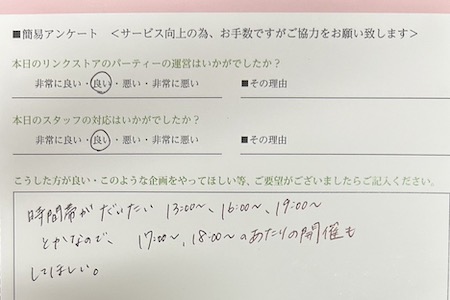 ■簡易アンケート ＜サービス向上の為、お手数ですがご協力をお願い致します＞
本日のリンクストアのパーティーの運営はいかがでしたか？
非常に良い・良い・悪い・非常に悪い ■その理由
本日のスタッフの対応はいかがでしたか？
非常に良い・良い・悪い・非常に悪い ■その理由
こうした方が良い・このような企画をやってほしい等、ご要望がございましたらご記入ください。
時間帯が だいたい 13:00〜、16:00〜、19:00〜
とかなので、 17:00〜, 18:00〜のあたりの開催も
してほしい。